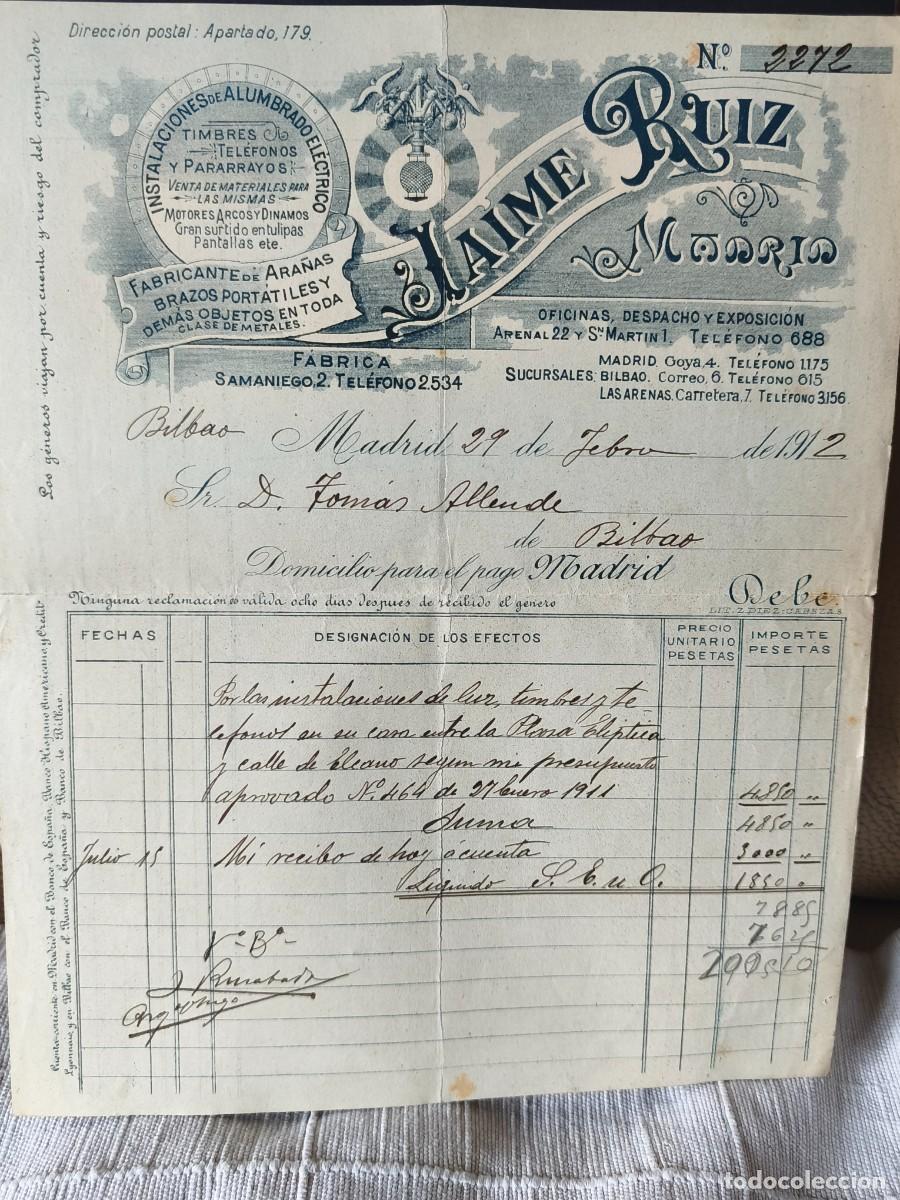 Dirección postal: Apartado, 179.
Nº 2272
INSTALACIONES DE ALUMBRADO ELÉCTRICO
TIMBRES
TELÉFONOS
Y PARARRAYOS
VENTA DE MATERIALES PARA
LAS MISMAS
MOTORES ARCOS Y DINAMOS
Gran surtido en tulipas
Pantallas etc.
FABRICANTE DE ARAÑAS
BRAZOS PORTÁTILES Y
DEMÁS OBJETOS EN TODA
CLASE DE METALES.
JAIME RUIZ
MADRID
OFICINAS, DESPACHO Y EXPOSICIÓN
ARENAL 22 Y Sn MARTIN 1. TELÉFONO 688
FÁBRICA
SAMANIEGO, 2. TELÉFONO 2.534
MADRID Goya, 4. TELÉFONO 1.175
SUCURSALES: BILBAO. Correo, 6. TELÉFONO 615
LAS ARENAS, Carretera, 7. TELÉFONO 3.156
Los géneros viajan por cuenta y riesgo del comprador
Bilbao Madrid 29 de Febro de 1912
Sr. D. Tomás Allende
de Bilbao
Domicilio para el pago Madrid
Ninguna reclamación es válida ocho dias despues de recibido el género
Debe
LIT. Z. DIEZ-CABEZAS
Cuenta corriente en Madrid con el Banco de España, Banco Hispano Americano y Credit
Lyonnais, y en Bilbao con el Banco de España y Banco de Bilbao.
FECHAS DESIGNACIÓN DE LOS EFECTOS PRECIO UNITARIO PESETAS IMPORTE PESETAS
Por las instalaciones de luz, timbres y te
lefonos en su casa entre la Plaza Eliptica
y calle de Elcano segun mi presupuesto
aprovado Nº 464 de 27 Enero 1911 4850 "
Suma 4850 "
Julio 15 Mi recibo de hoy á cuenta 3000 "
Liquido S. E. u O. 1850 "
7885
7625
Vº Bº